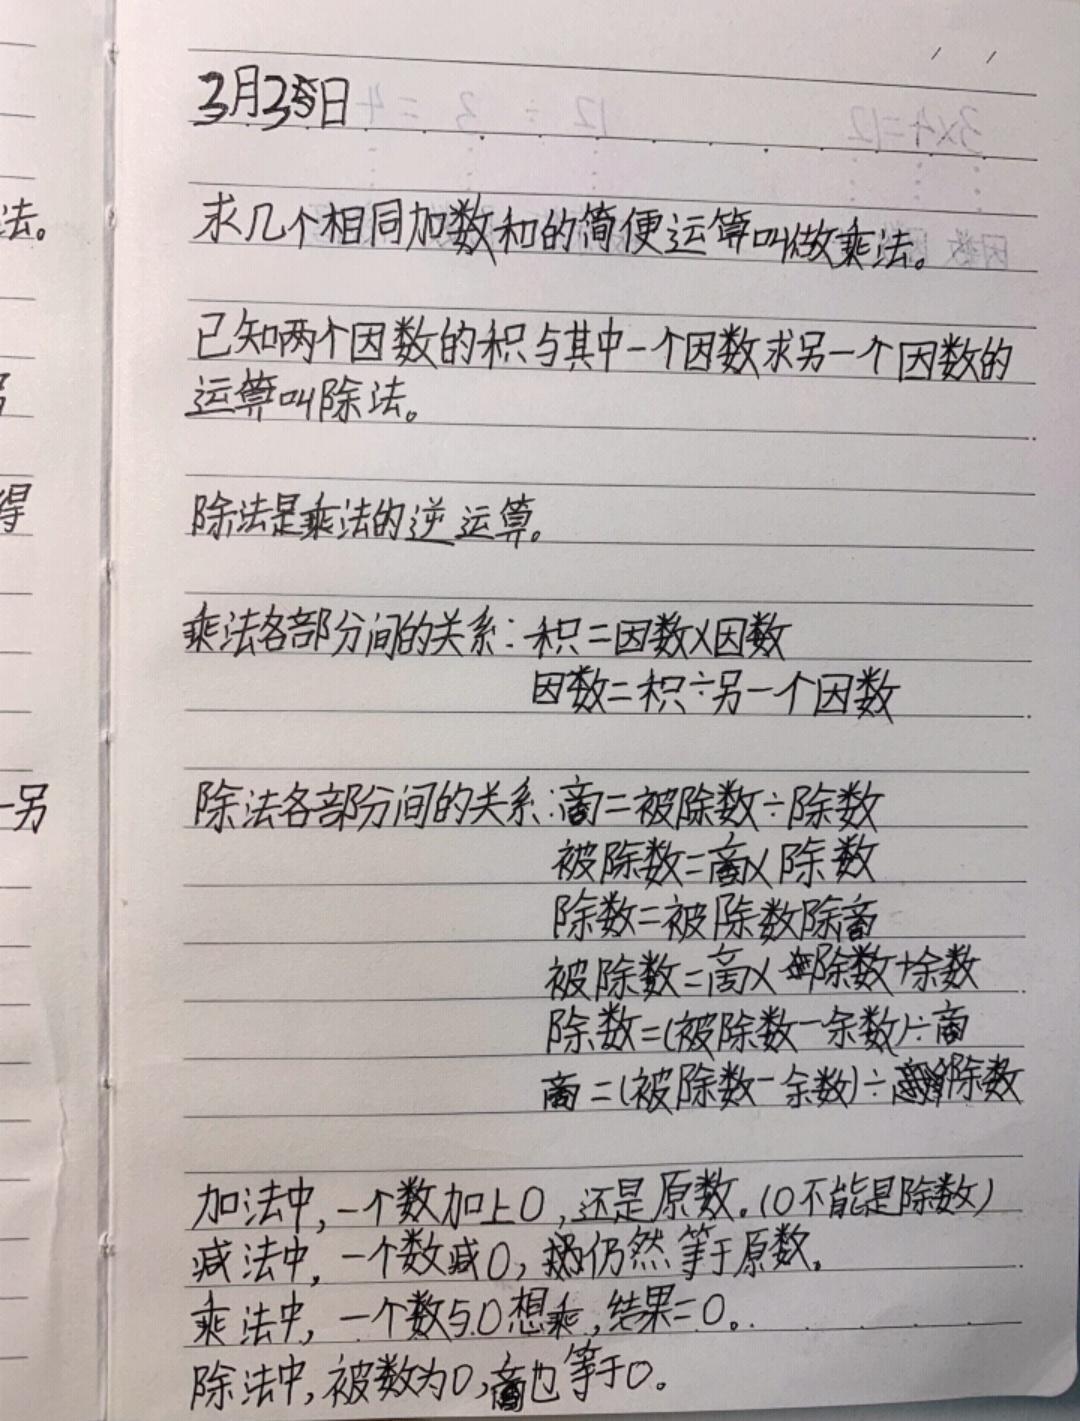 3月25日
求几个相同加数和的简便运算叫做乘法。
已知两个因数的积与其中一个因数求另一个因数的
运算叫除法。
除法是乘法的逆运算。
乘法各部分间的关系:积=因数×因数
因数=积÷另一个因数
除法各部分间的关系:商=被除数÷除数
被除数=商×除数
除数=被除数除商
被除数=商×除数+余数
除数=(被除数-余数)÷商
商=(被除数-余数)÷除数
加法中,一个数加上0,还是原数。(0不能是除数)
减法中,一个数减0,仍然等于原数。
乘法中,一个数与0想乘,结果=0。
除法中,被数为0,商也等于0。
法。
另
得
一另